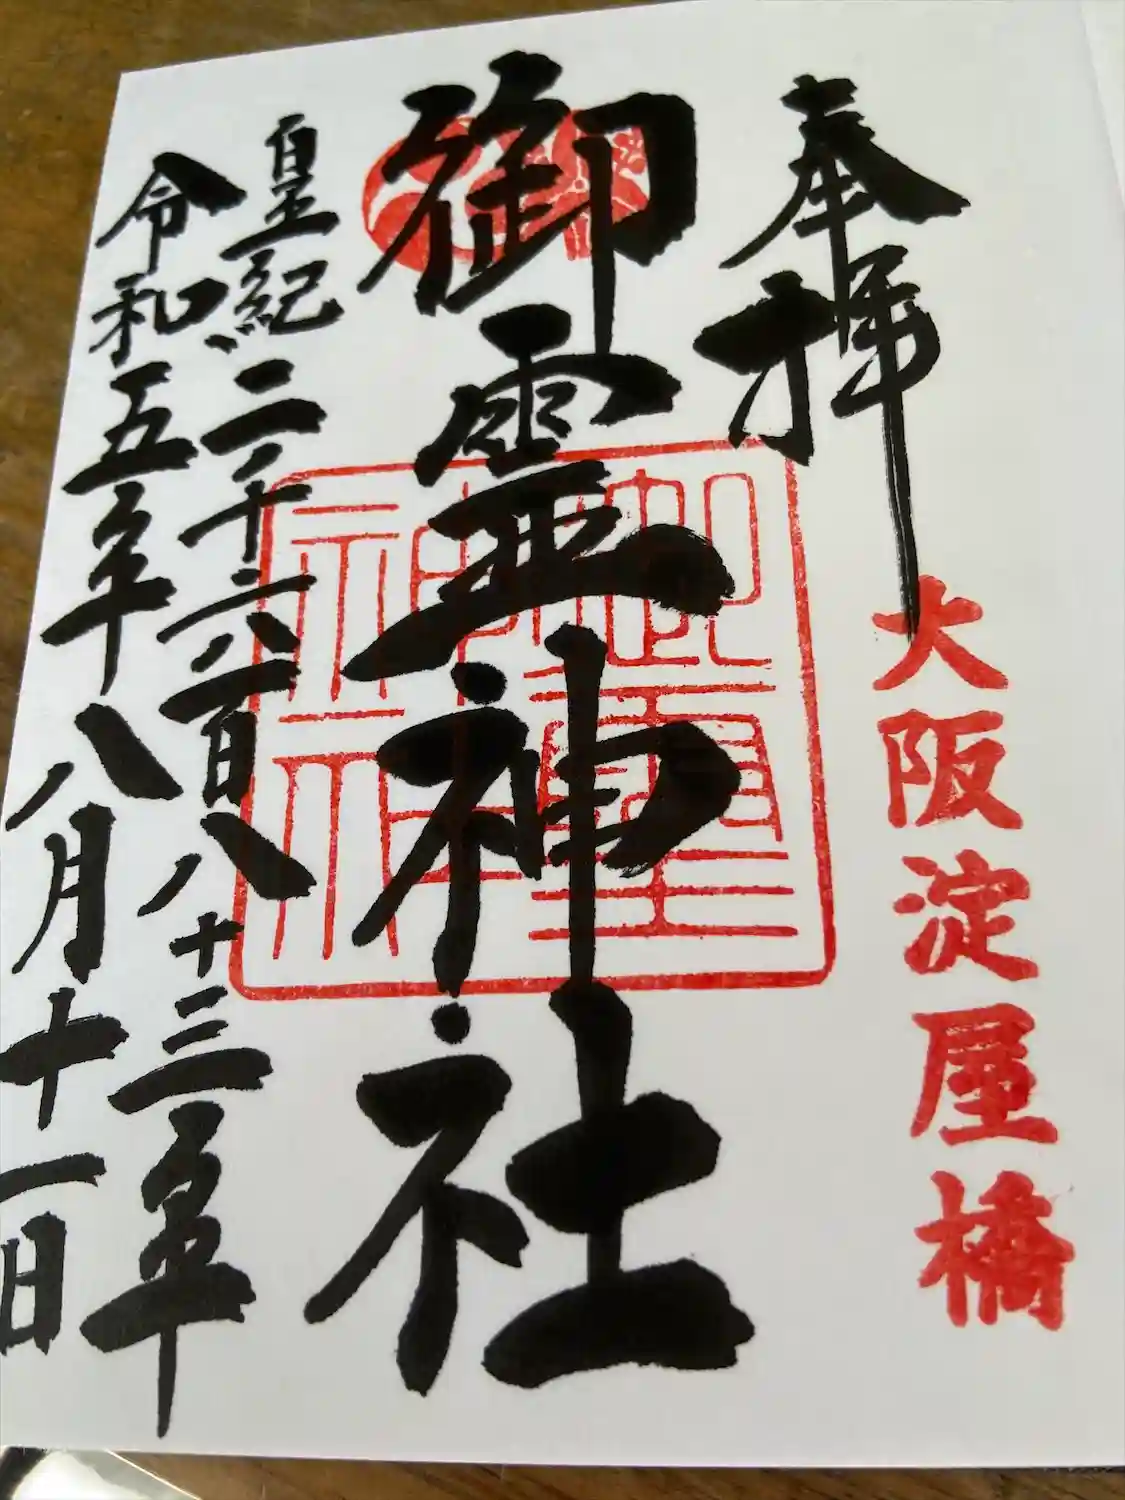 奉拝
大阪淀屋橋
御霊神社
御霊神社
皇紀二千六百八十三年
令和五年八月十一日